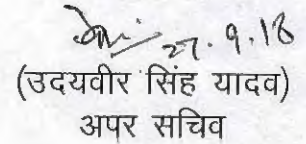 27.9.18
(उदयवीर सिंह यादव)
अपर सचिव